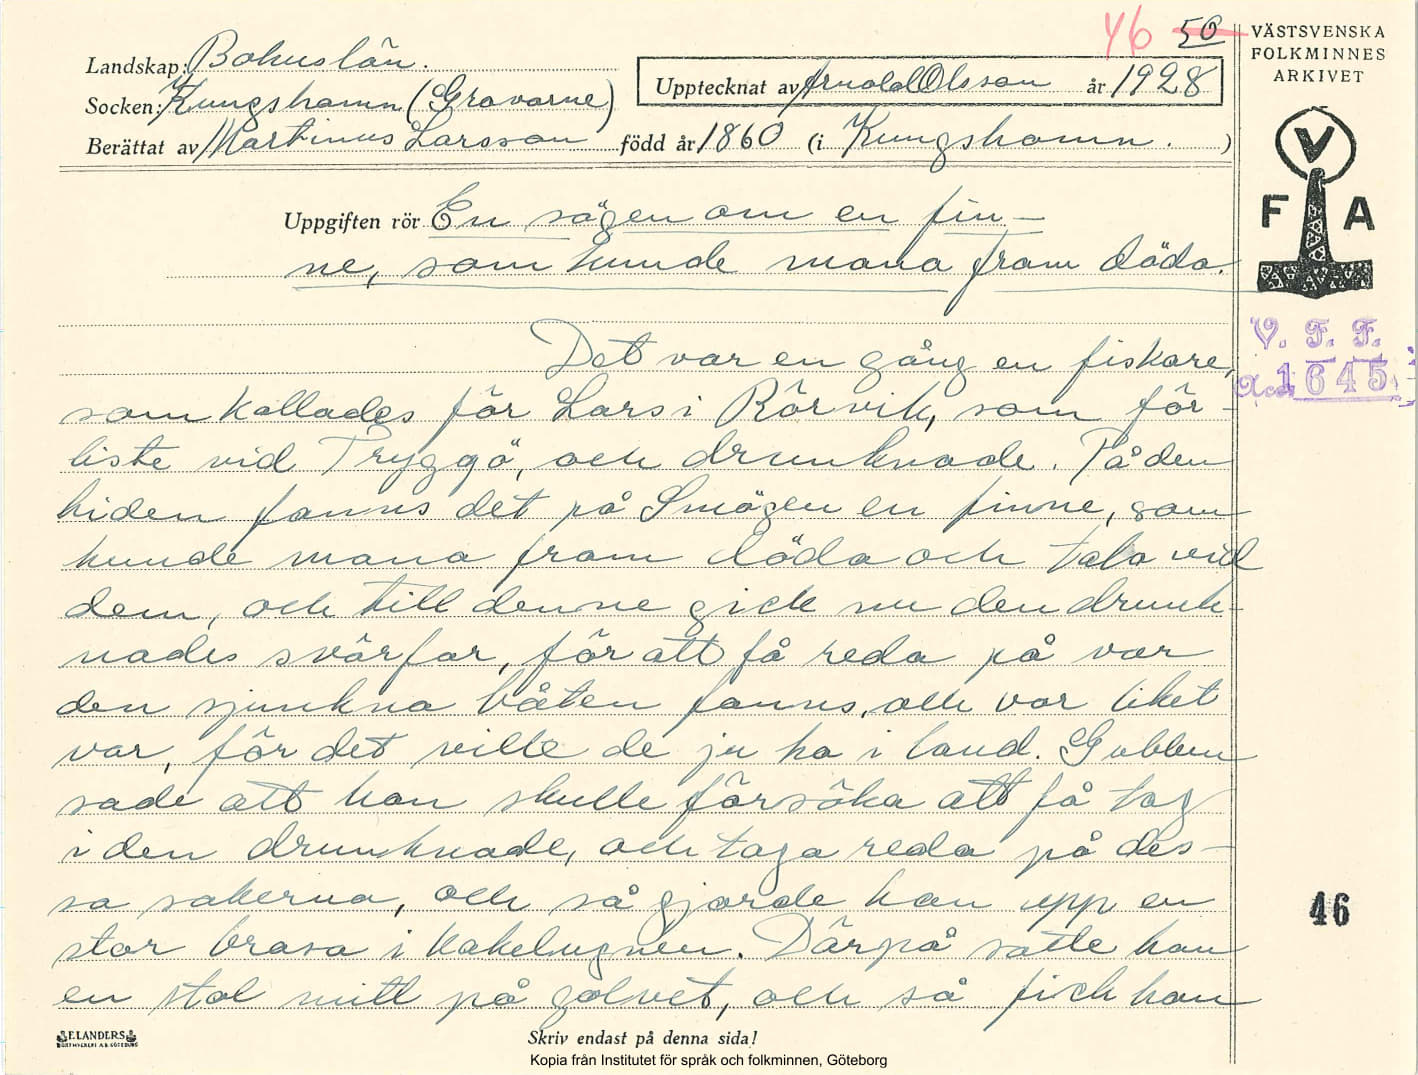 46 50
VÄSTSVENSKA
FOLKMINNES
ARKIVET
Landskap: Bohuslän.
Upptecknat av Arnold Olsson år 1928
Socken: Kungshamn (Gravarne)
Berättat av Martinus Larsson född år 1860 (i Kungshamn. )
V
F A
Uppgiften rör En sägen om en fin-
ne, som kunde mana fram döda.
V. F. F.
Acc. 1645
Det var en gång en fiskare,
som kallades för Lars i Rörvik, som för-
liste vid Tryggö, och drunknade. På den
tiden fanns det på Smögen en finne, som
kunde mana fram döda och tala vid
dem, och till denne gick nu den drunk-
nades svärfar, för att få reda på var
den sjunkna båten fanns, och var liket
var, för det ville de ju ha i land. Gubben
sade att han skulle försöka att få tag
i den drunknade, och taga reda på des-
sa sakerna, och så gjorde han upp en
stor brasa i kakelugnen. Därpå satte han
en stol mitt på golvet, och så fick han
46
Skriv endast på denna sida!
F. LANDERS
BOKTRYCKERI A.B. GÖTEBORG
Kopia från Institutet för språk och folkminnen, Göteborg